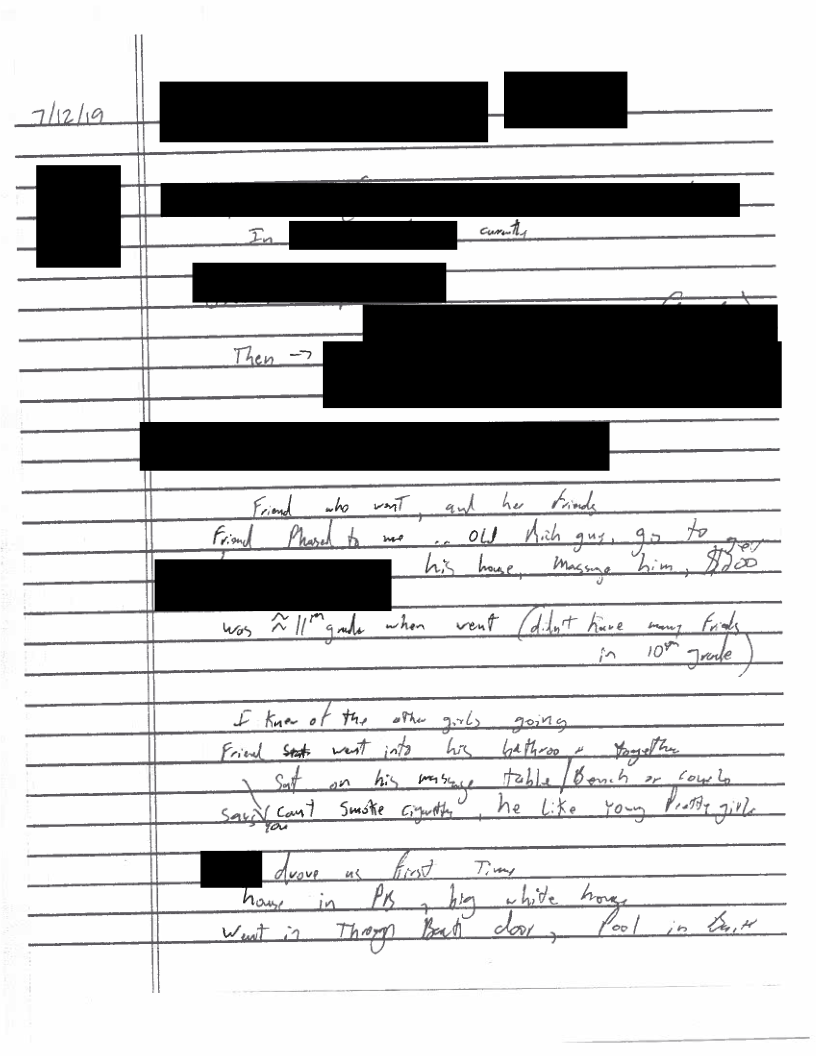 7/12/19
In currently
Then →
Friend who went, and her friends
Friend Phased to me .. OLd Rich guy, go to
his house, massage him, $200
was ≈ 11th grade when went (didn't have many Friends
in 10th grade)
I knew of the other girls going
Friend went into his bathroom together
Sat on his massage table/Bench or couch
says you can't smoke cigarettes, he like young Pretty girls
drove us first Time
house in PB, big white house
Went in Through Back door, Pool in